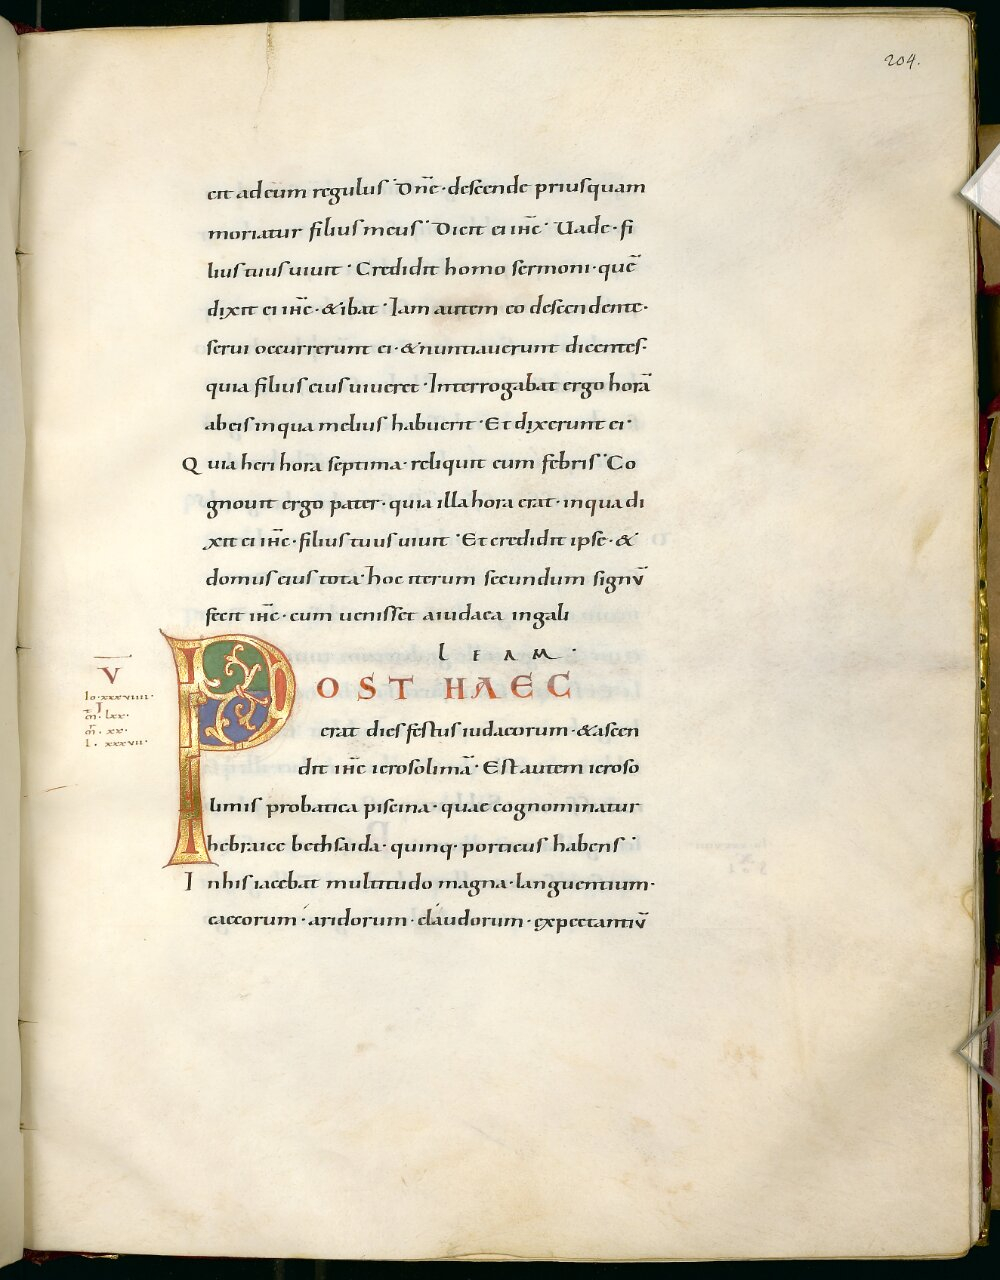 204.
cit ad eum regulus · Dn̄e · descende priusquam
moriatur filius meus · Dicit ei ih̄c · Uade · fi
lius tuus uiuit · Credidit homo sermoni · quē
dixit ei ih̄c · & ibat · Iam autem eo descendente ·
serui occurrerunt ei · & nuntiauerunt dicentes ·
quia filius eius uiueret · Interrogabat ergo horā
ab eis in qua melius habuerit · Et dixerunt ei ·
Quia heri hora septima · reliquit eum febris · Co
gnouit ergo pater · quia illa hora erat · in qua di
xit ei ih̄c · filius tuus uiuit · Et credidit ipse · &
domus eius tota · hoc iterum secundum signū
fecit ih̄c · cum uenisset a iudaea in gali
leam ·
POST HAEC
V
Io · xxxviiii ·
m̄ · lxx ·
m̄ · xx ·
l · xxxvii ·
erat dies festus iudaeorum · & ascen
dit ih̄c ierosolimā · Est autem ieroso
limis probatica piscina · quae cognominatur
hebraice bethsaida · quinq · porticus habens ·
In his iacebat multitudo magna · languentium ·
caecorum · aridorum · claudorum · expectantiū